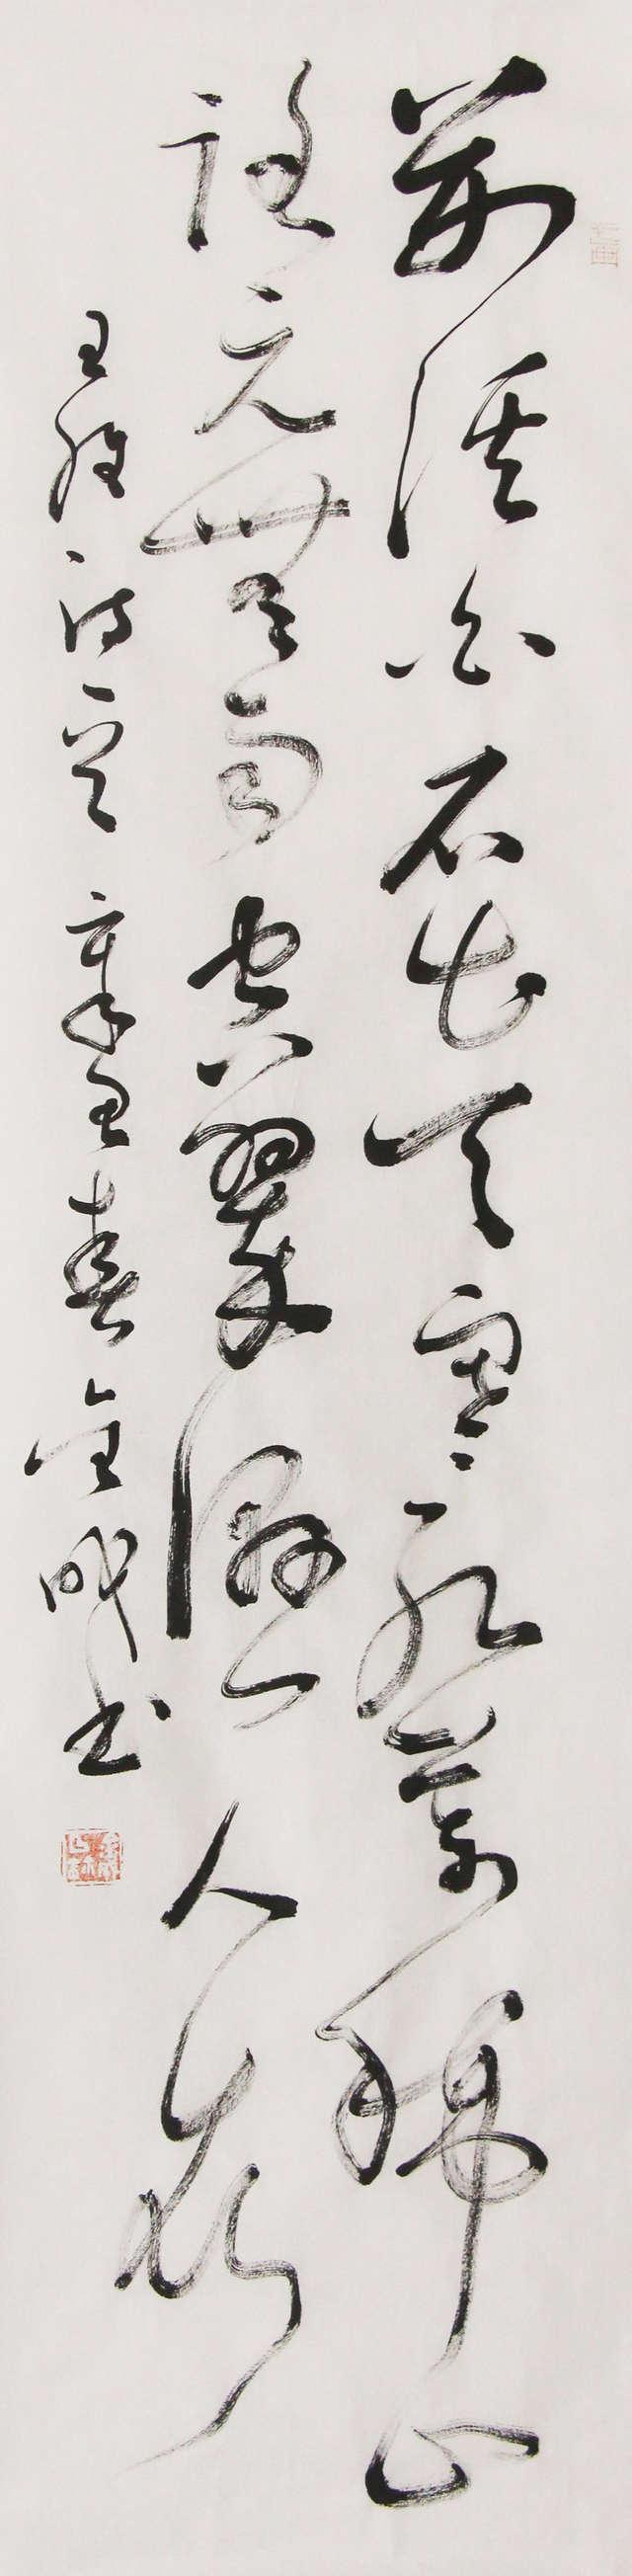 荊溪白石出天寒紅葉稀山
路元無雨空翠濕人衣
王維詩一首 辛丑春金成书